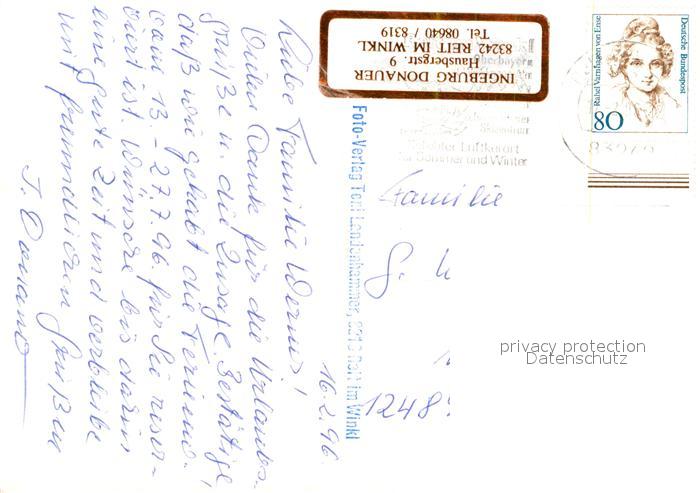 16.2.96
Liebe Familie Werner!
Vielen Dank für die Urlaubs-
grüße u. die Zusage. Bestätige,
daß wie gehabt die Ferienwo.
vom 13. - 27.7.96 für Sie reser-
viert ist. Wünsche bis dahin
eine gute Zeit und verbleibe
mit freundlichen Grüßen
I. Donauer
Foto-Verlag Toni Landenhammer, 8216 Reit im Winkl
INGEBURG DONAUER
Hausbergstr. 9
83242 REIT IM WINKL
Tel. 08640 / 8319
Oberbayern
Luftkurort
für Sommer und Winter
83242
Deutsche Bundespost
Rahel Varnhagen von Ense
80
Familie
G. W
1248
privacy protection
Datenschutz